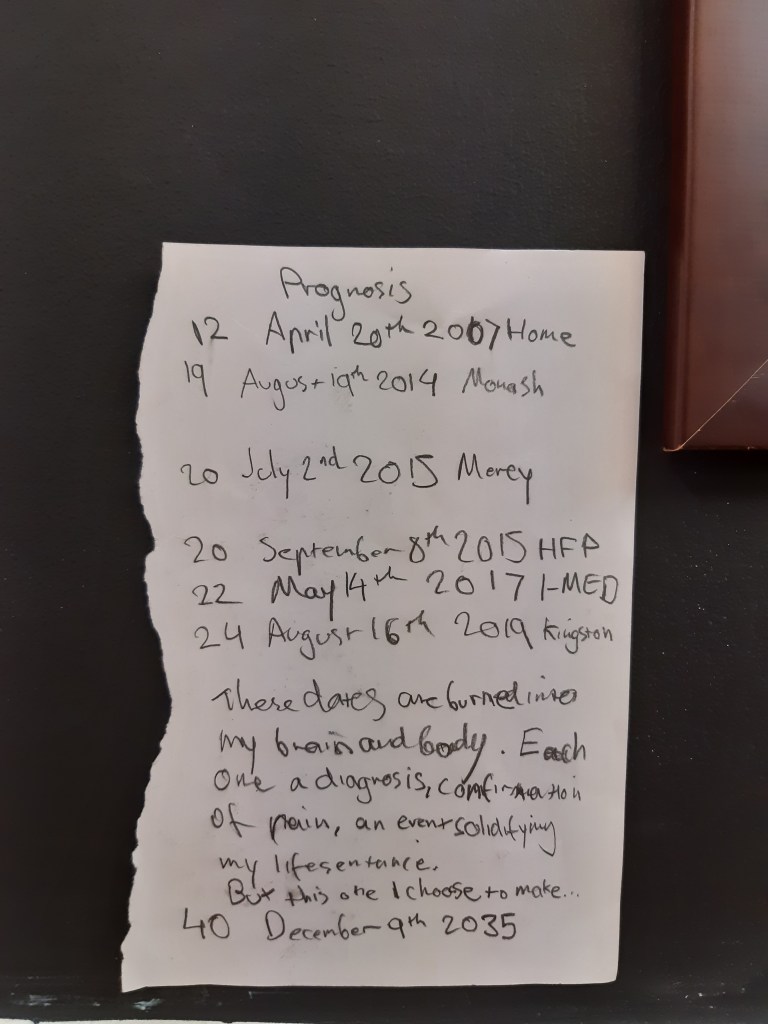 Prognosis
12 April 20th 2007 Home
19 August 19th 2014 Monash
20 July 2nd 2015 Mercy
20 September 8th 2015 HFP
22 May 14th 2017 I-MED
24 August 16th 2019 Kingston
These dates are burned into
my brain and body. Each
one a diagnosis, confirmation
of pain, an event solidifying
my lifesentance.
But this one I choose to make...
40 December 9th 2035